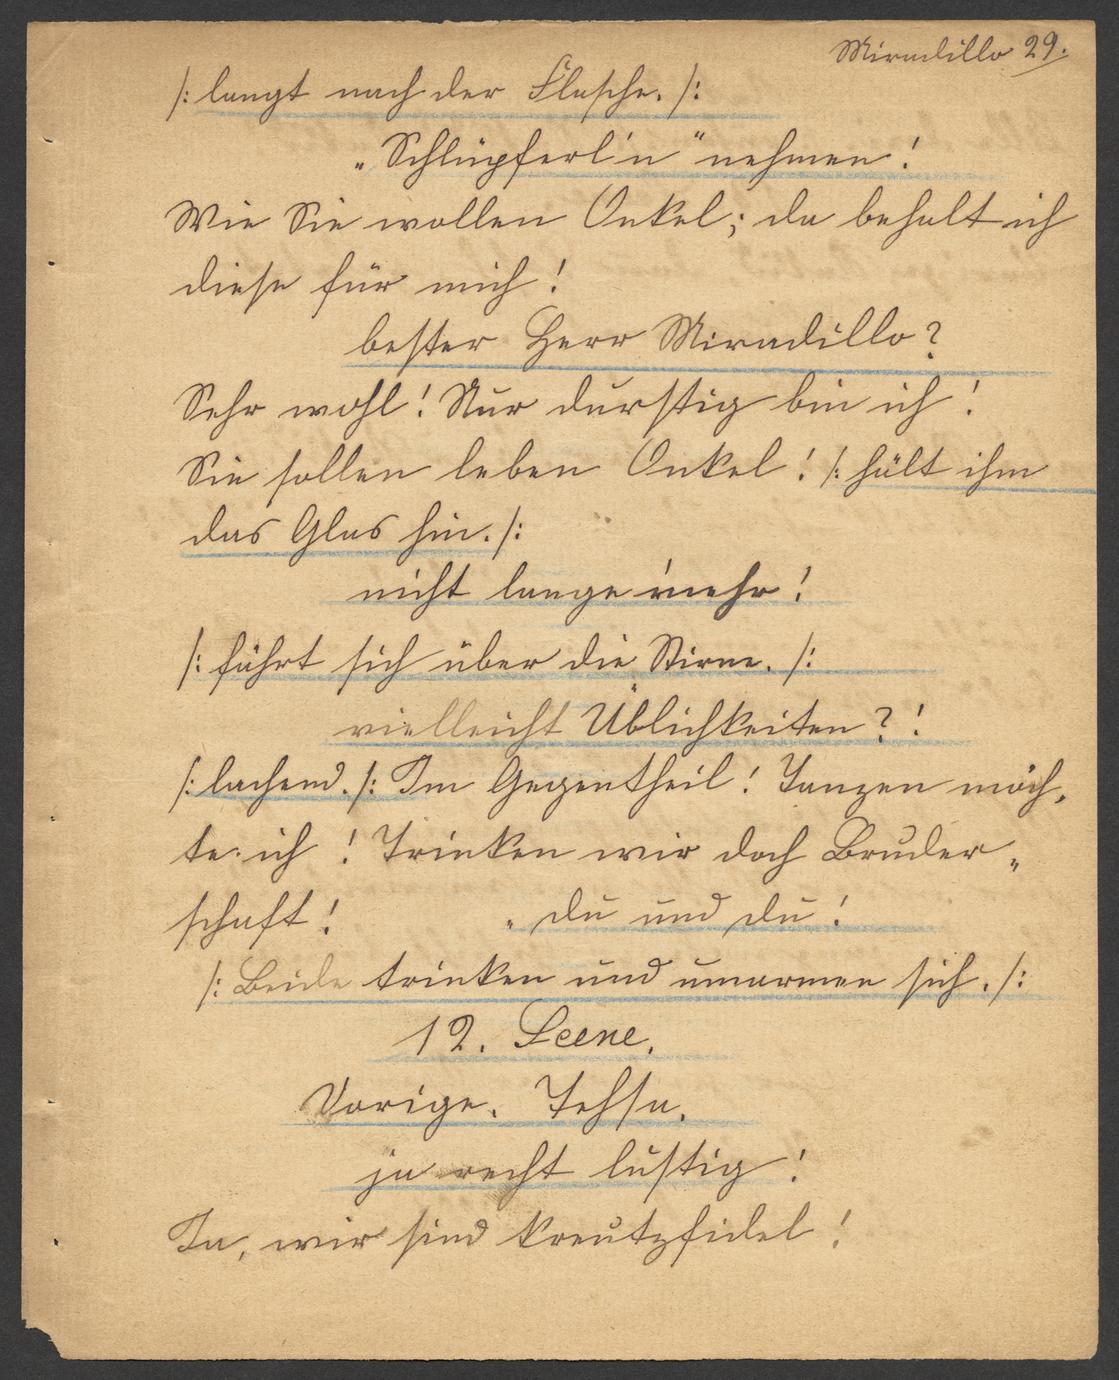 Miradillo 29.
/: langt nach der Flasche. /:
„Schlüpferl'n" nehmen!
Wie Sie wollen Onkel; da behalt ich
diese für mich!
bester Herr Miradillo?
Sehr wohl! Nur durstig bin ich!
Sie sollen leben Onkel! /: hält ihm
das Glas hin. /:
nicht lange mehr!
/: fährt sich über die Stirne. /:
vielleicht Üblichkeiten?!
/: lachend. /: Im Gegentheil! Tanzen möch,
te ich! Trinken wir doch Bruder„
schaft! „ du und du!
/: Beide trinken und umarmen sich. /:
12. Scene.
Vorige.
ja recht lustig!
Ja, wir sind kreutzfidel!